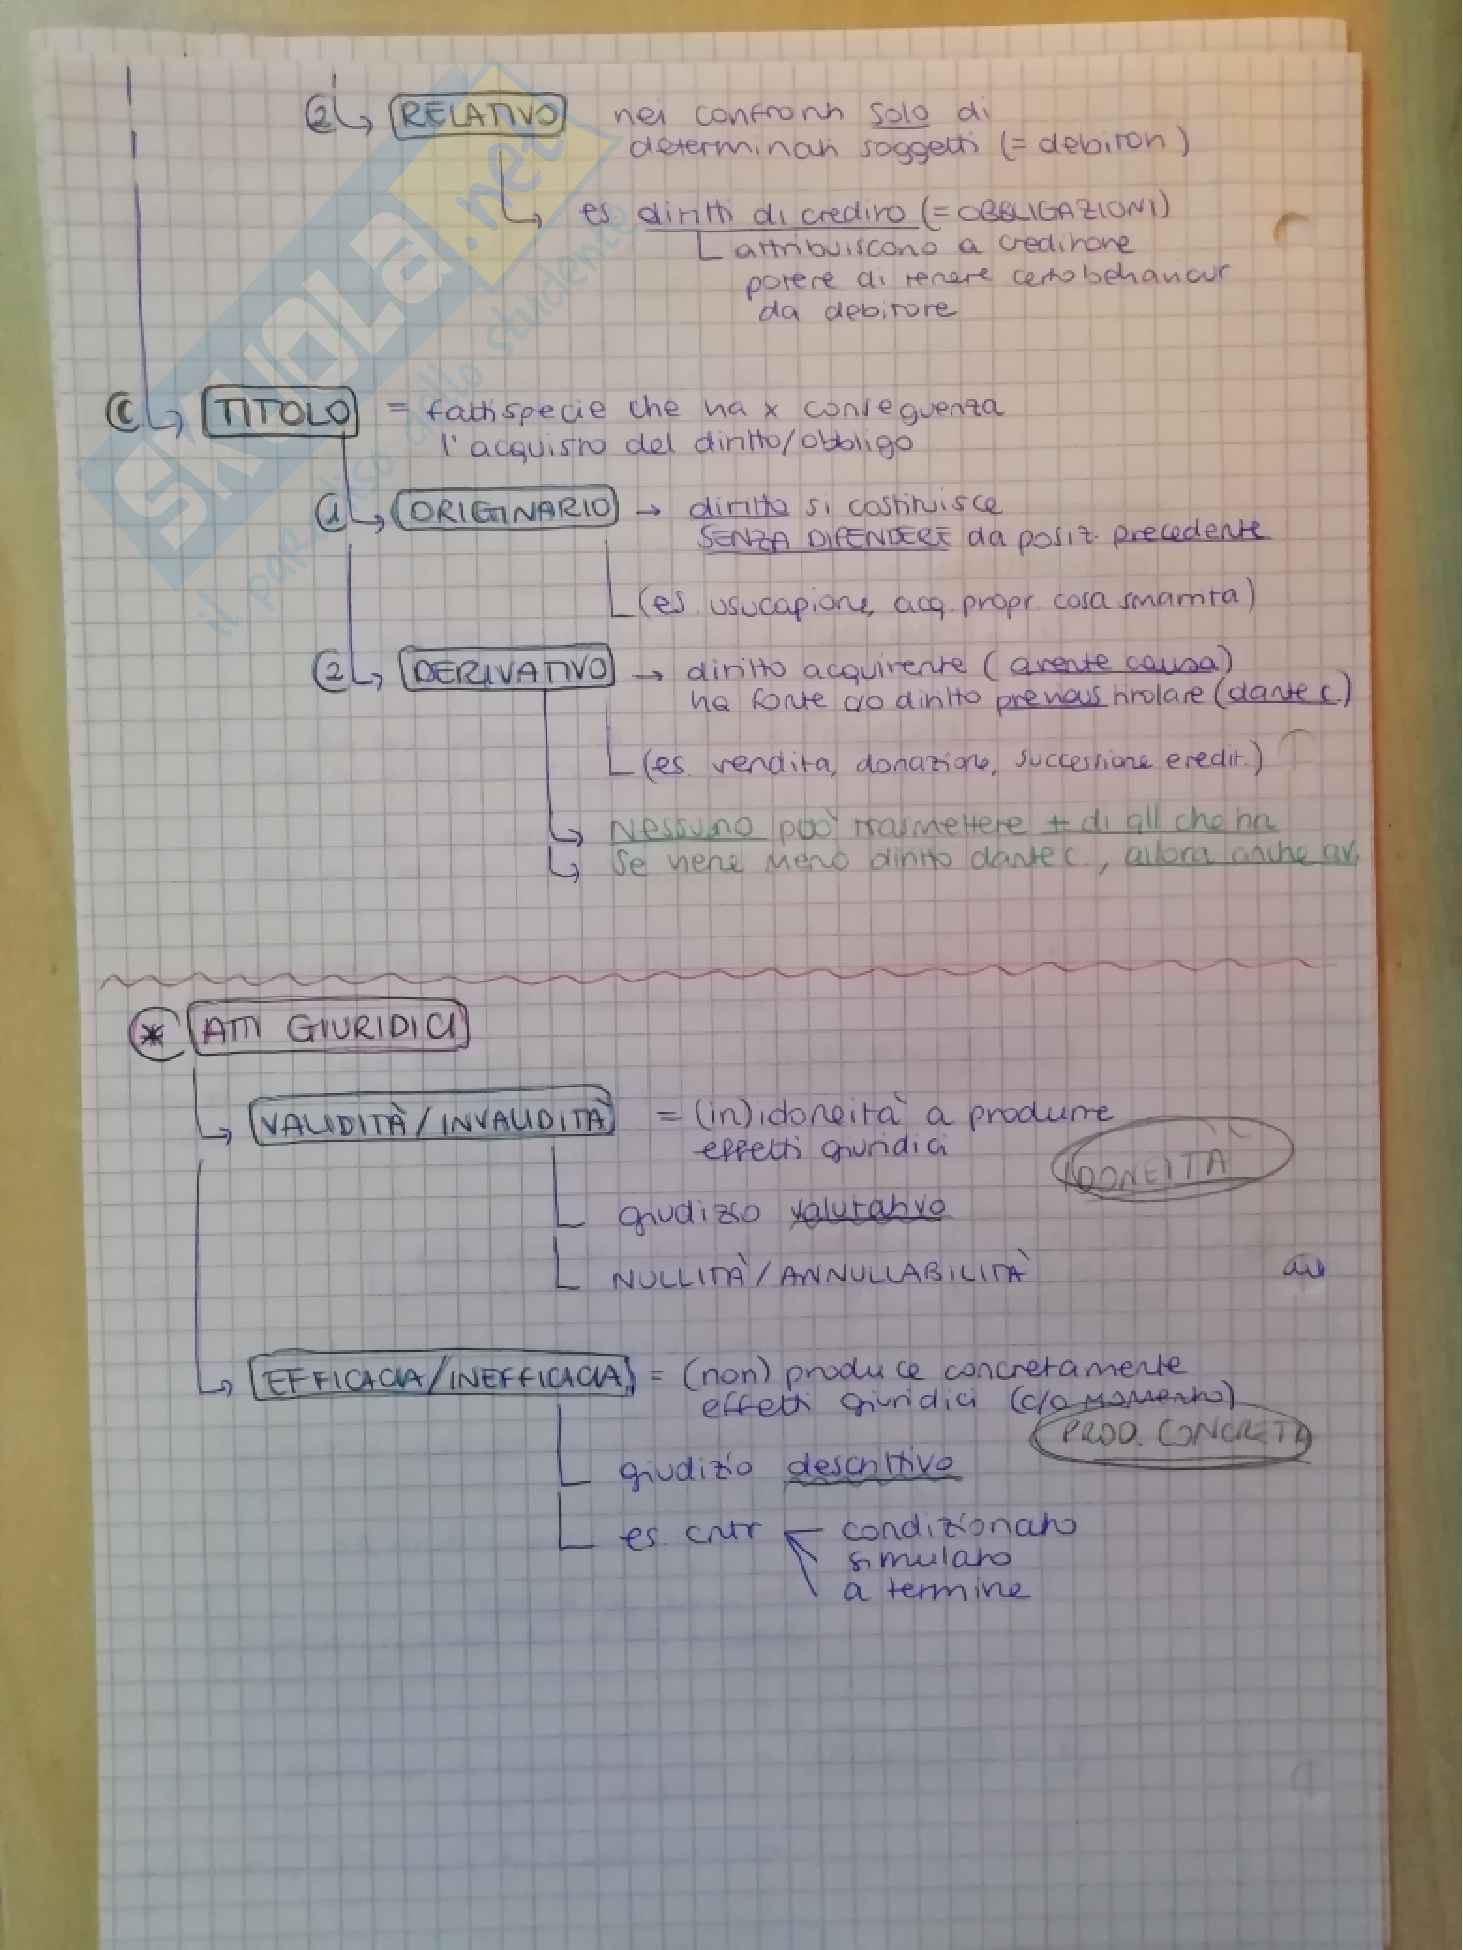 2 RELATIVO nei confronti solo di
determinati soggetti (= debitori)
es. diritti di credito (= OBBLIGAZIONI)
attribuiscono a creditore
potere di tenere certo behaviour
da debitore
C TITOLO = fattispecie che ha x conseguenza
l'acquisto del diritto/obbligo
1 ORIGINARIO → diritto si costituisce
SENZA DIPENDERE da posiz. precedente
(es. usucapione, acq. propr. cosa smarrita)
2 DERIVATIVO → diritto acquirente (avente causa)
ha fonte c/o diritto previous titolare (dante c.)
(es. vendita, donazione, successione eredit.)
Nessuno può trasmettere + di qll che ha
Se viene meno diritto dante c., allora anche av.
* ATTI GIURIDICI
VALIDITÀ/INVALIDITÀ = (in)idoneità a produrre
effetti giuridici
IDONEITÀ
giudizio valutativo
NULLITÀ/ANNULLABILITÀ
EFFICACIA/INEFFICACIA = (non) produce concretamente
effetti giuridici (c/o momento)
PROD. CONCRETA
giudizio descrittivo
es. cntr condizionato
simulato
a termine
SKUOLA.net
il paradiso dello studente